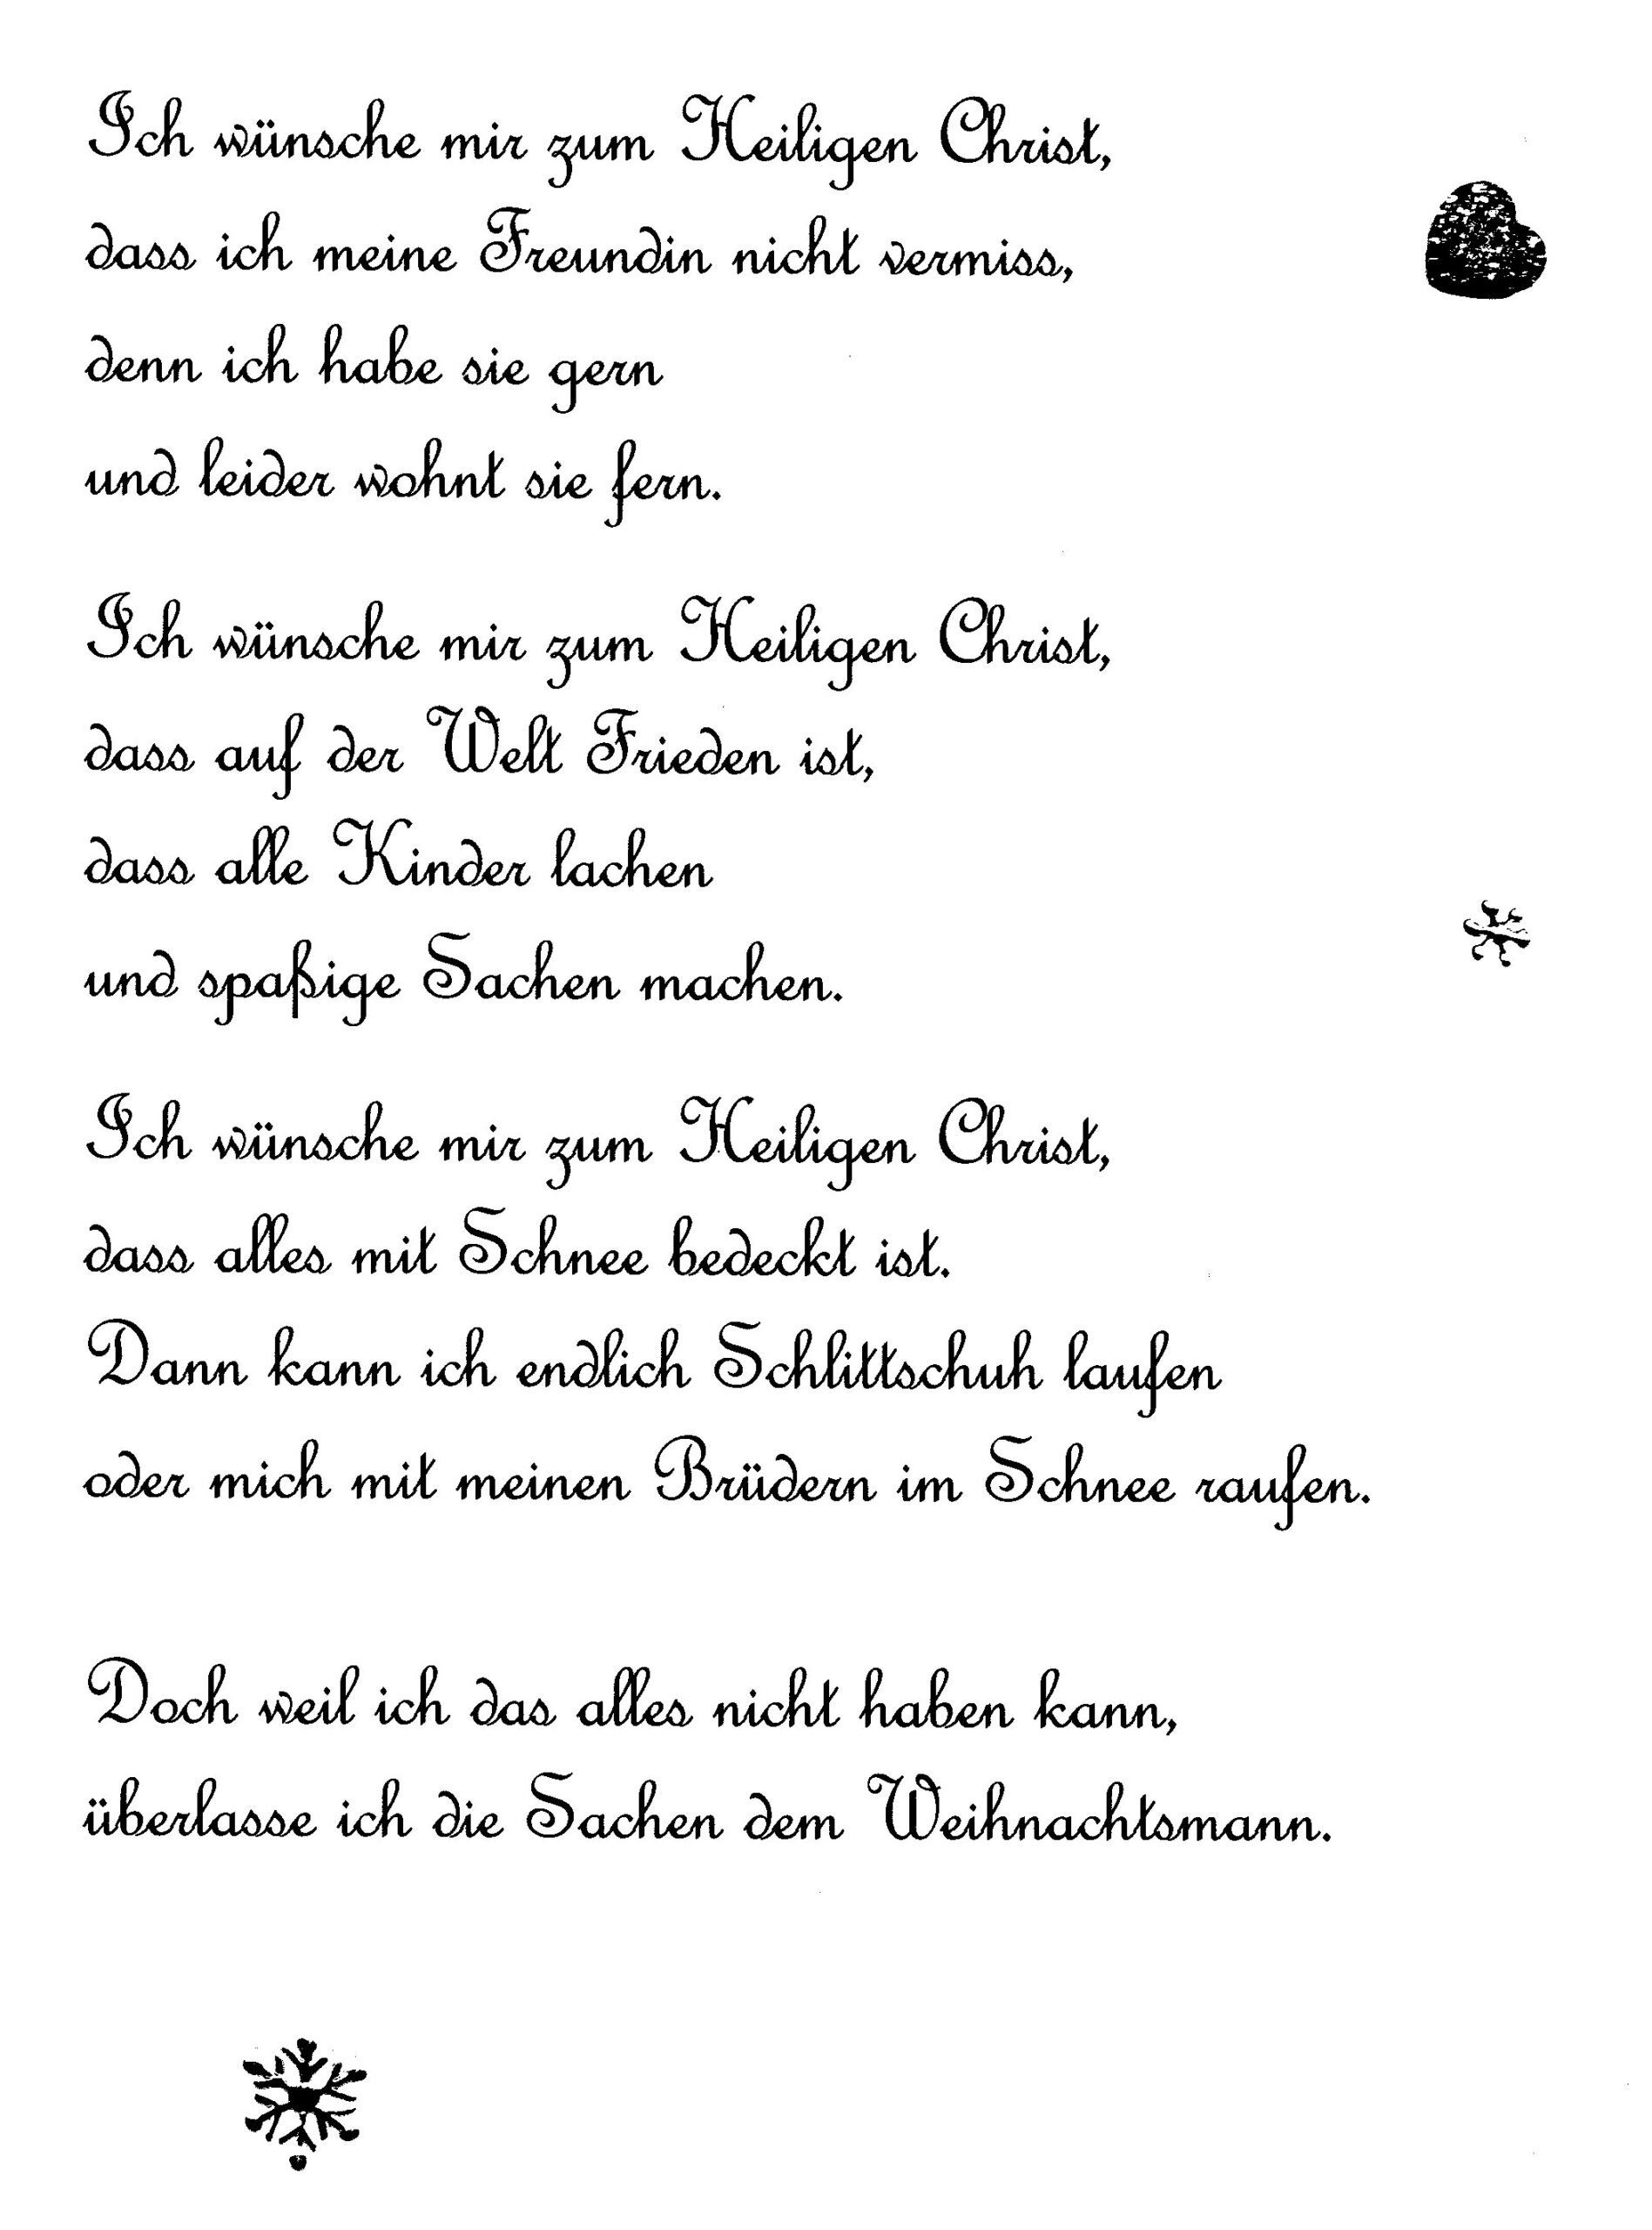 Ich wünsche mir zum Heiligen Christ,
dass ich meine Freundin nicht vermiss,
denn ich habe sie gern
und leider wohnt sie fern.
Ich wünsche mir zum Heiligen Christ,
dass auf der Welt Frieden ist,
dass alle Kinder lachen
und spaßige Sachen machen.
Ich wünsche mir zum Heiligen Christ,
dass alles mit Schnee bedeckt ist.
Dann kann ich endlich Schlittschuh laufen
oder mich mit meinen Brüdern im Schnee raufen.
Doch weil ich das alles nicht haben kann,
überlasse ich die Sachen dem Weihnachtsmann.